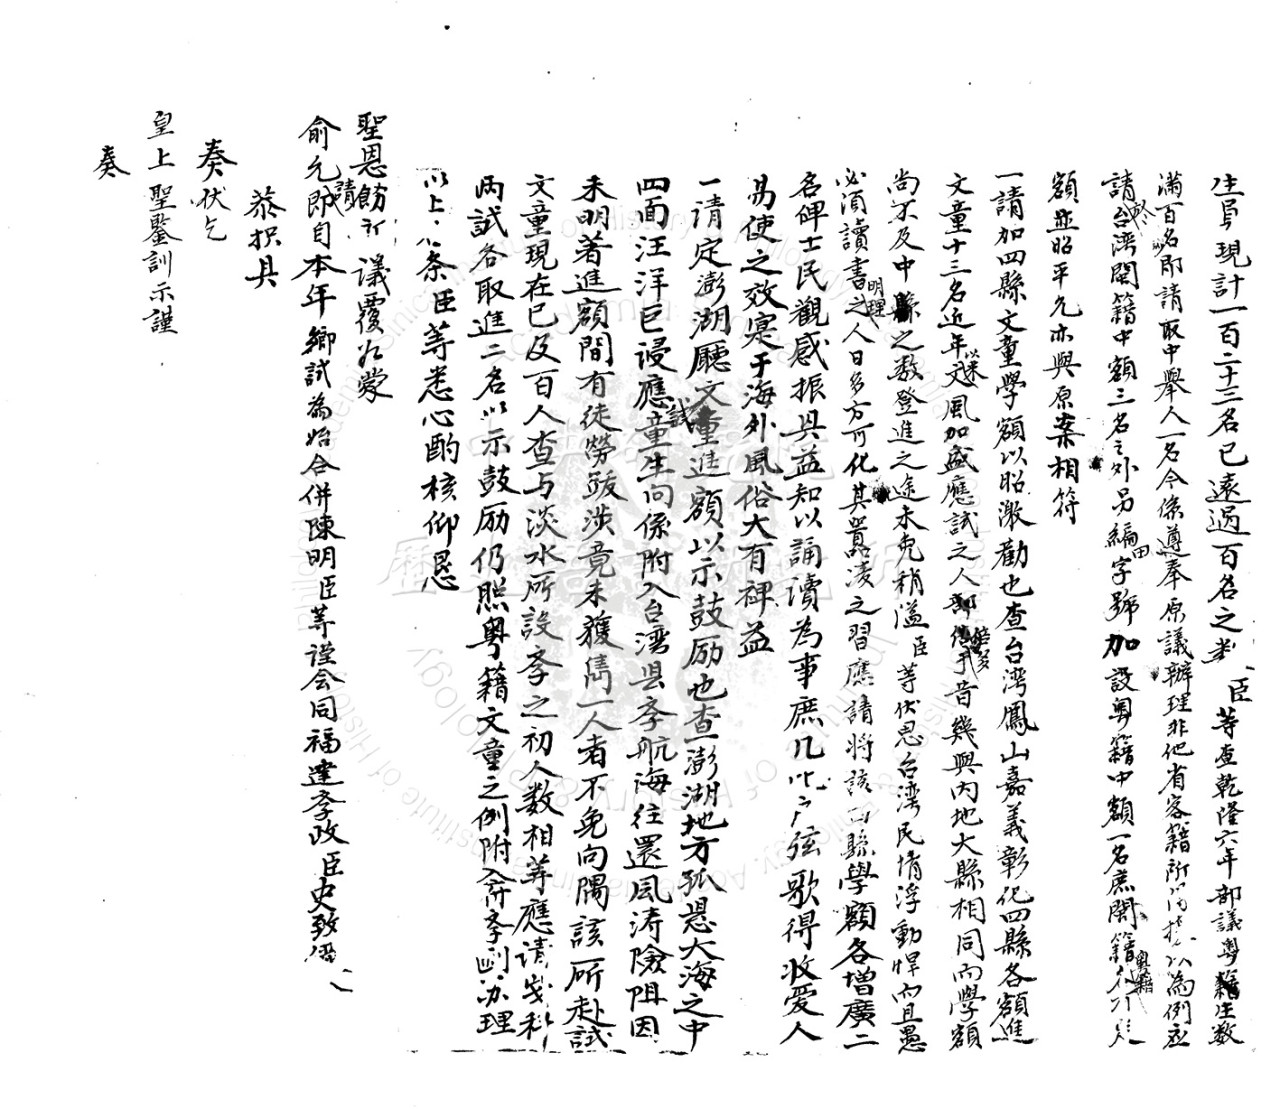 生員現計一百二十三名已遠過百名之數臣等查乾隆六年部議粵籍生數
滿百名即請取中舉人一名今係遵奉原議辦理非他省客籍所得援以為例應
請於台湾閩籍中額三名之外另編田字號加設粵籍中額一名庶閩籍粵籍
額並昭平允亦與原案相符
一請加四縣文童學額以昭激勸也查台湾鳳山嘉義彰化四縣各額進
文童十三名近年以來文風加盛應試之人倍多昔幾與內地大縣相同而學額
尚不及中縣之數登進之途未免稍溢臣等伏思台湾民情浮動悍而且愚
必須讀書明理之人日多方可化其囂凌之習應請將該四縣學額各增廣二
名俾士民觀感振興益知以誦讀為事庶几比戶弦歌得收愛人
易使之效寔于海外風俗大有裨益
一請定澎湖廳文童進額以示鼓励也查澎湖地方孤悬大海之中
四面汪洋巨浸應試童生向係附入台湾县孝航海往還風涛險阻因
未明著進額間有徒勞跋涉竟未獲雋一人者不免向隅該所赴試
文童現在已及百人查与淡水所設孝之初人数相等應請歲科
両試各取進二名以示鼓励仍照粵籍文童之例附入府孝办理
以上八条臣等悉心酌核仰恳
聖恩飭部議覆如蒙
俞允請即自本年鄉試為始合併陳明臣等謹会同福建孝政臣史致儼
恭摺具
奏伏乞
皇上聖鑒訓示謹
奏